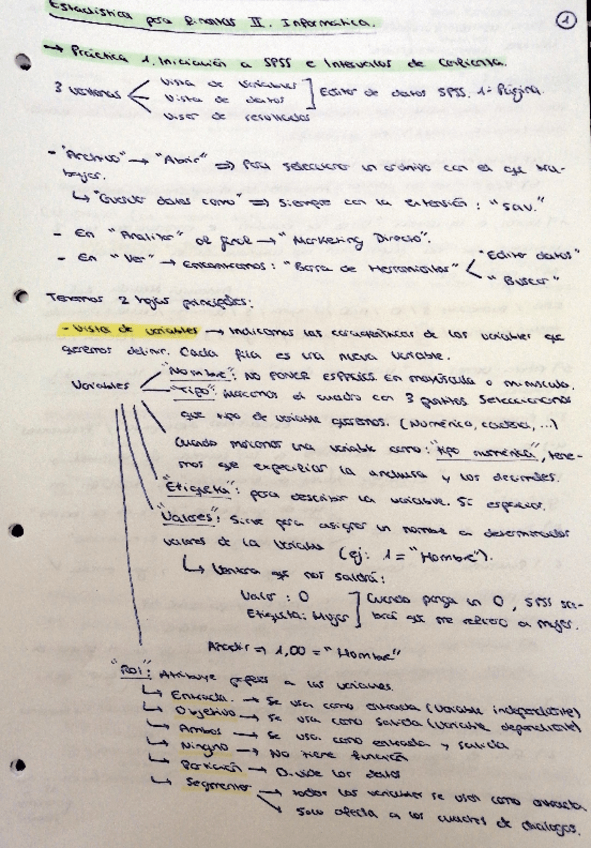 Estadística para Finanzas II. Informática.
1
→ Práctica 1. Iniciación a SPSS e Intervalos de confianza.
3 ventanas
Vista de variables
Vista de datos
Editor de datos SPSS. 1ª Página.
Visor de resultados
- "Archivo" → "Abrir" ⇒ Para seleccionar un archivo con el que tra-
bajar.
↳ "Guardar datos como" ⇒ Siempre con la extensión: "sav."
- En "Analizar" al final → "Marketing Directo".
- En "Ver" → Encontramos: "Barra de Herramientas"
"Editor datos"
"Buscar"
Tenemos 2 hojas principales:
- Vista de variables → Indicamos las características de las variables que
queremos definir. Cada fila es una nueva variable.
Variables
"Nombre": NO PONER ESPACIOS. En mayúscula o minúscula.
"Tipo": Hacemos el cuadro con 3 puntos seleccionamos
que tipo de variable queremos. (Numérica, cadena, ...)
Cuando marcamos una variable como: "tipo numérica", tene-
mos que especificar la anchura y los decimales.
"Etiqueta": para describir la variable. Sí espacios.
"Valores": Sirve para asignar un nombre a determinados
valores de la variable (ej: 1 = "Hombre").
↳ Ventana que nos saldrá:
Valor : 0
Etiqueta: Mujer
Cuando ponga un 0, SPSS sa-
brá que me refiero a mujer.
Añadir ⇒ 1,00 = "Hombre"
"Rol": Atribuye papeles a las variables.
↳ Entrada → Se usa como entrada (variable independiente)
↳ Objetivo → Se usa como salida (variable dependiente)
↳ Ambos → Se usa como entrada y salida
↳ Ninguno → No tiene función
↳ Partición → Divide los datos
↳ Segmentar → todas las variables se usan como entrada
solo afecta a los cuadros de diálogos.